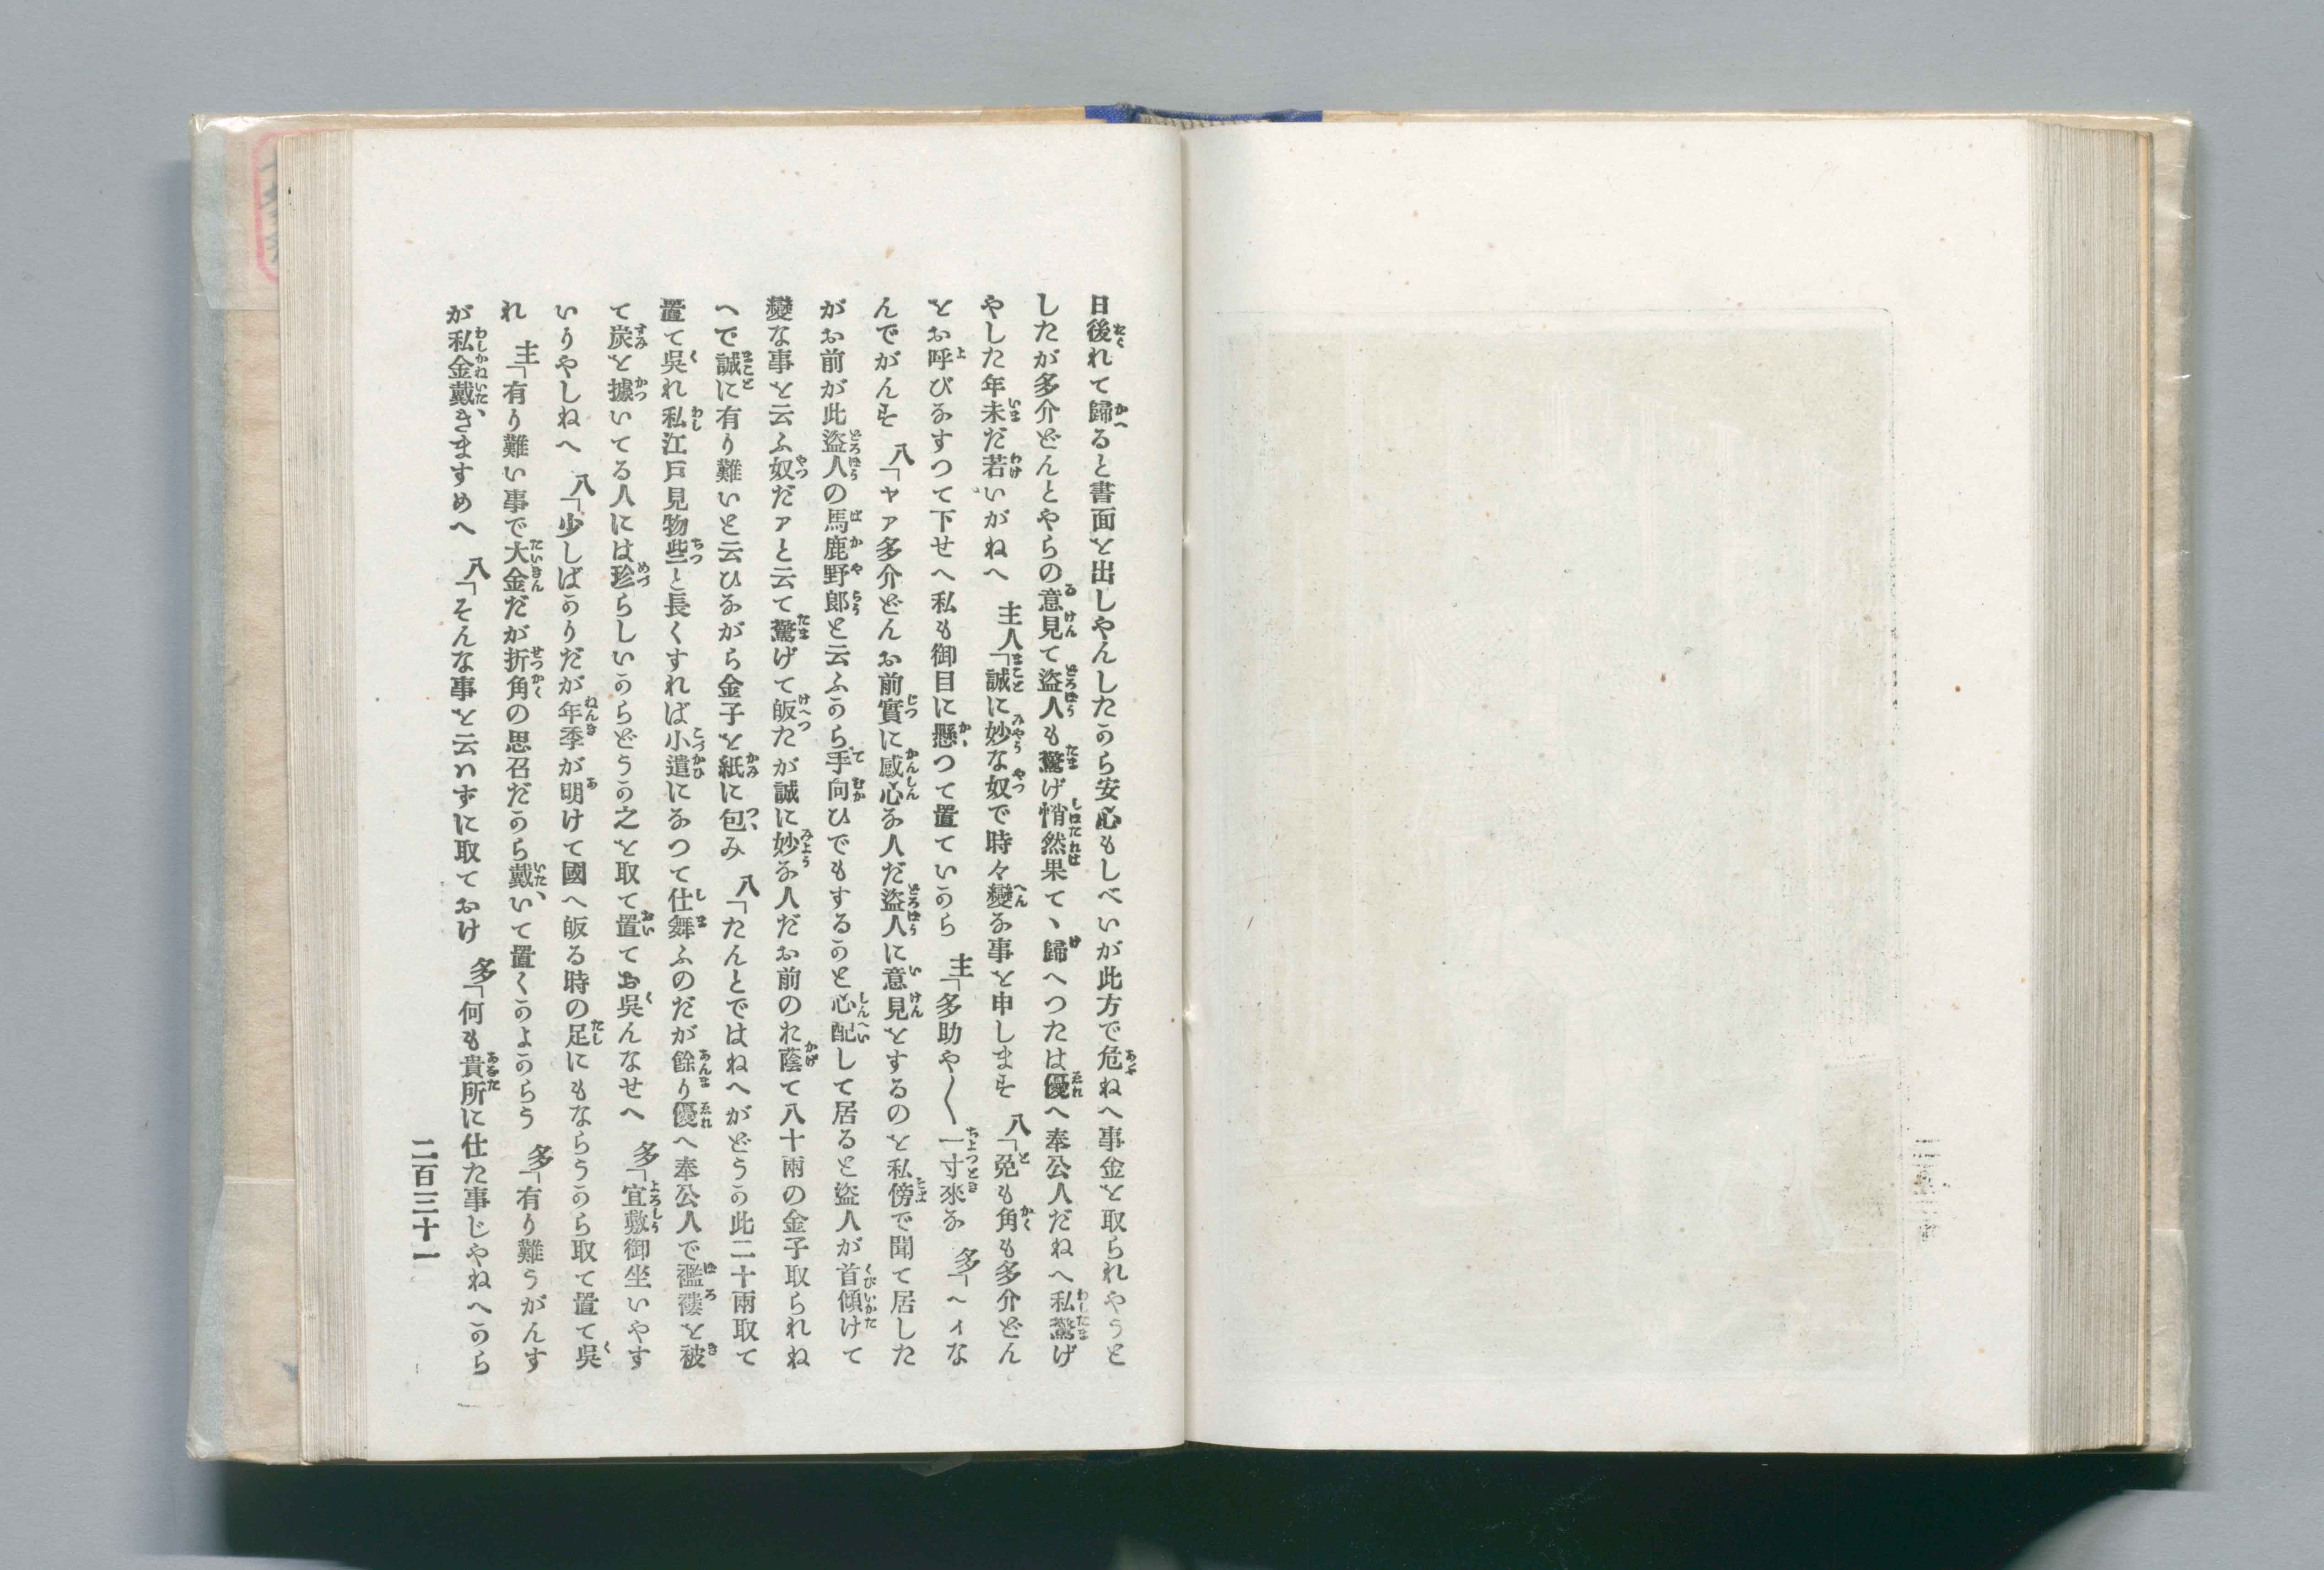 日後れて歸ると書面と出しやんしたのら安心もしべいが此方で危ねへ事金と取られやうと
したが多介どんとやらの意見て盜人も驚げ悄然果て、歸へつたは優へ奉公人だねへ私驚げ
やした年未だ若いがねへ　主人「誠に妙な奴で時々變な事と申します　八「兎も角も多介どん
とお呼びなすつて下せへ私も御目に懸つて置ていのら　主「多助や〱一寸來な　多「へィな
んでがんす　八「ヤァ多介どんお前實に感心な人だ盜人に意見とするのと私傍で聞て居した
がお前が此盜人の馬鹿野郎と云ふのら手向ひでもするのと心配して居ると盜人が首傾けて
變な事と云ふ奴だァと云て驚げて皈たが誠に妙な人だお前のれ蔭て八十兩の金子取られね
へで誠に有り難いと云ひながら金子と紙に包み　八「たんとではねへがどうの此二十兩取て
置て呉れ私江戸見物些と長くすれば小遣になつて仕舞ふのだが餘り優へ奉公人で襤褸と被
て炭と擔いてる人には珍らしいのらどうの之と取て置てお呉んなせへ　多「宜敷御坐いやす
いりやしねへ　八「少しばのりだが年季が明けて國へ皈る時の足にもならうのら取て置て呉
れ　主「有り難い事で大金だが折角の思召だのら戴いて置くのよのらう　多「有り難うがんす
が私金戴きますめへ　八「そんな事と云ハずに取ておけ　多「何も貴所に仕た事じやねへのら
二百三十一